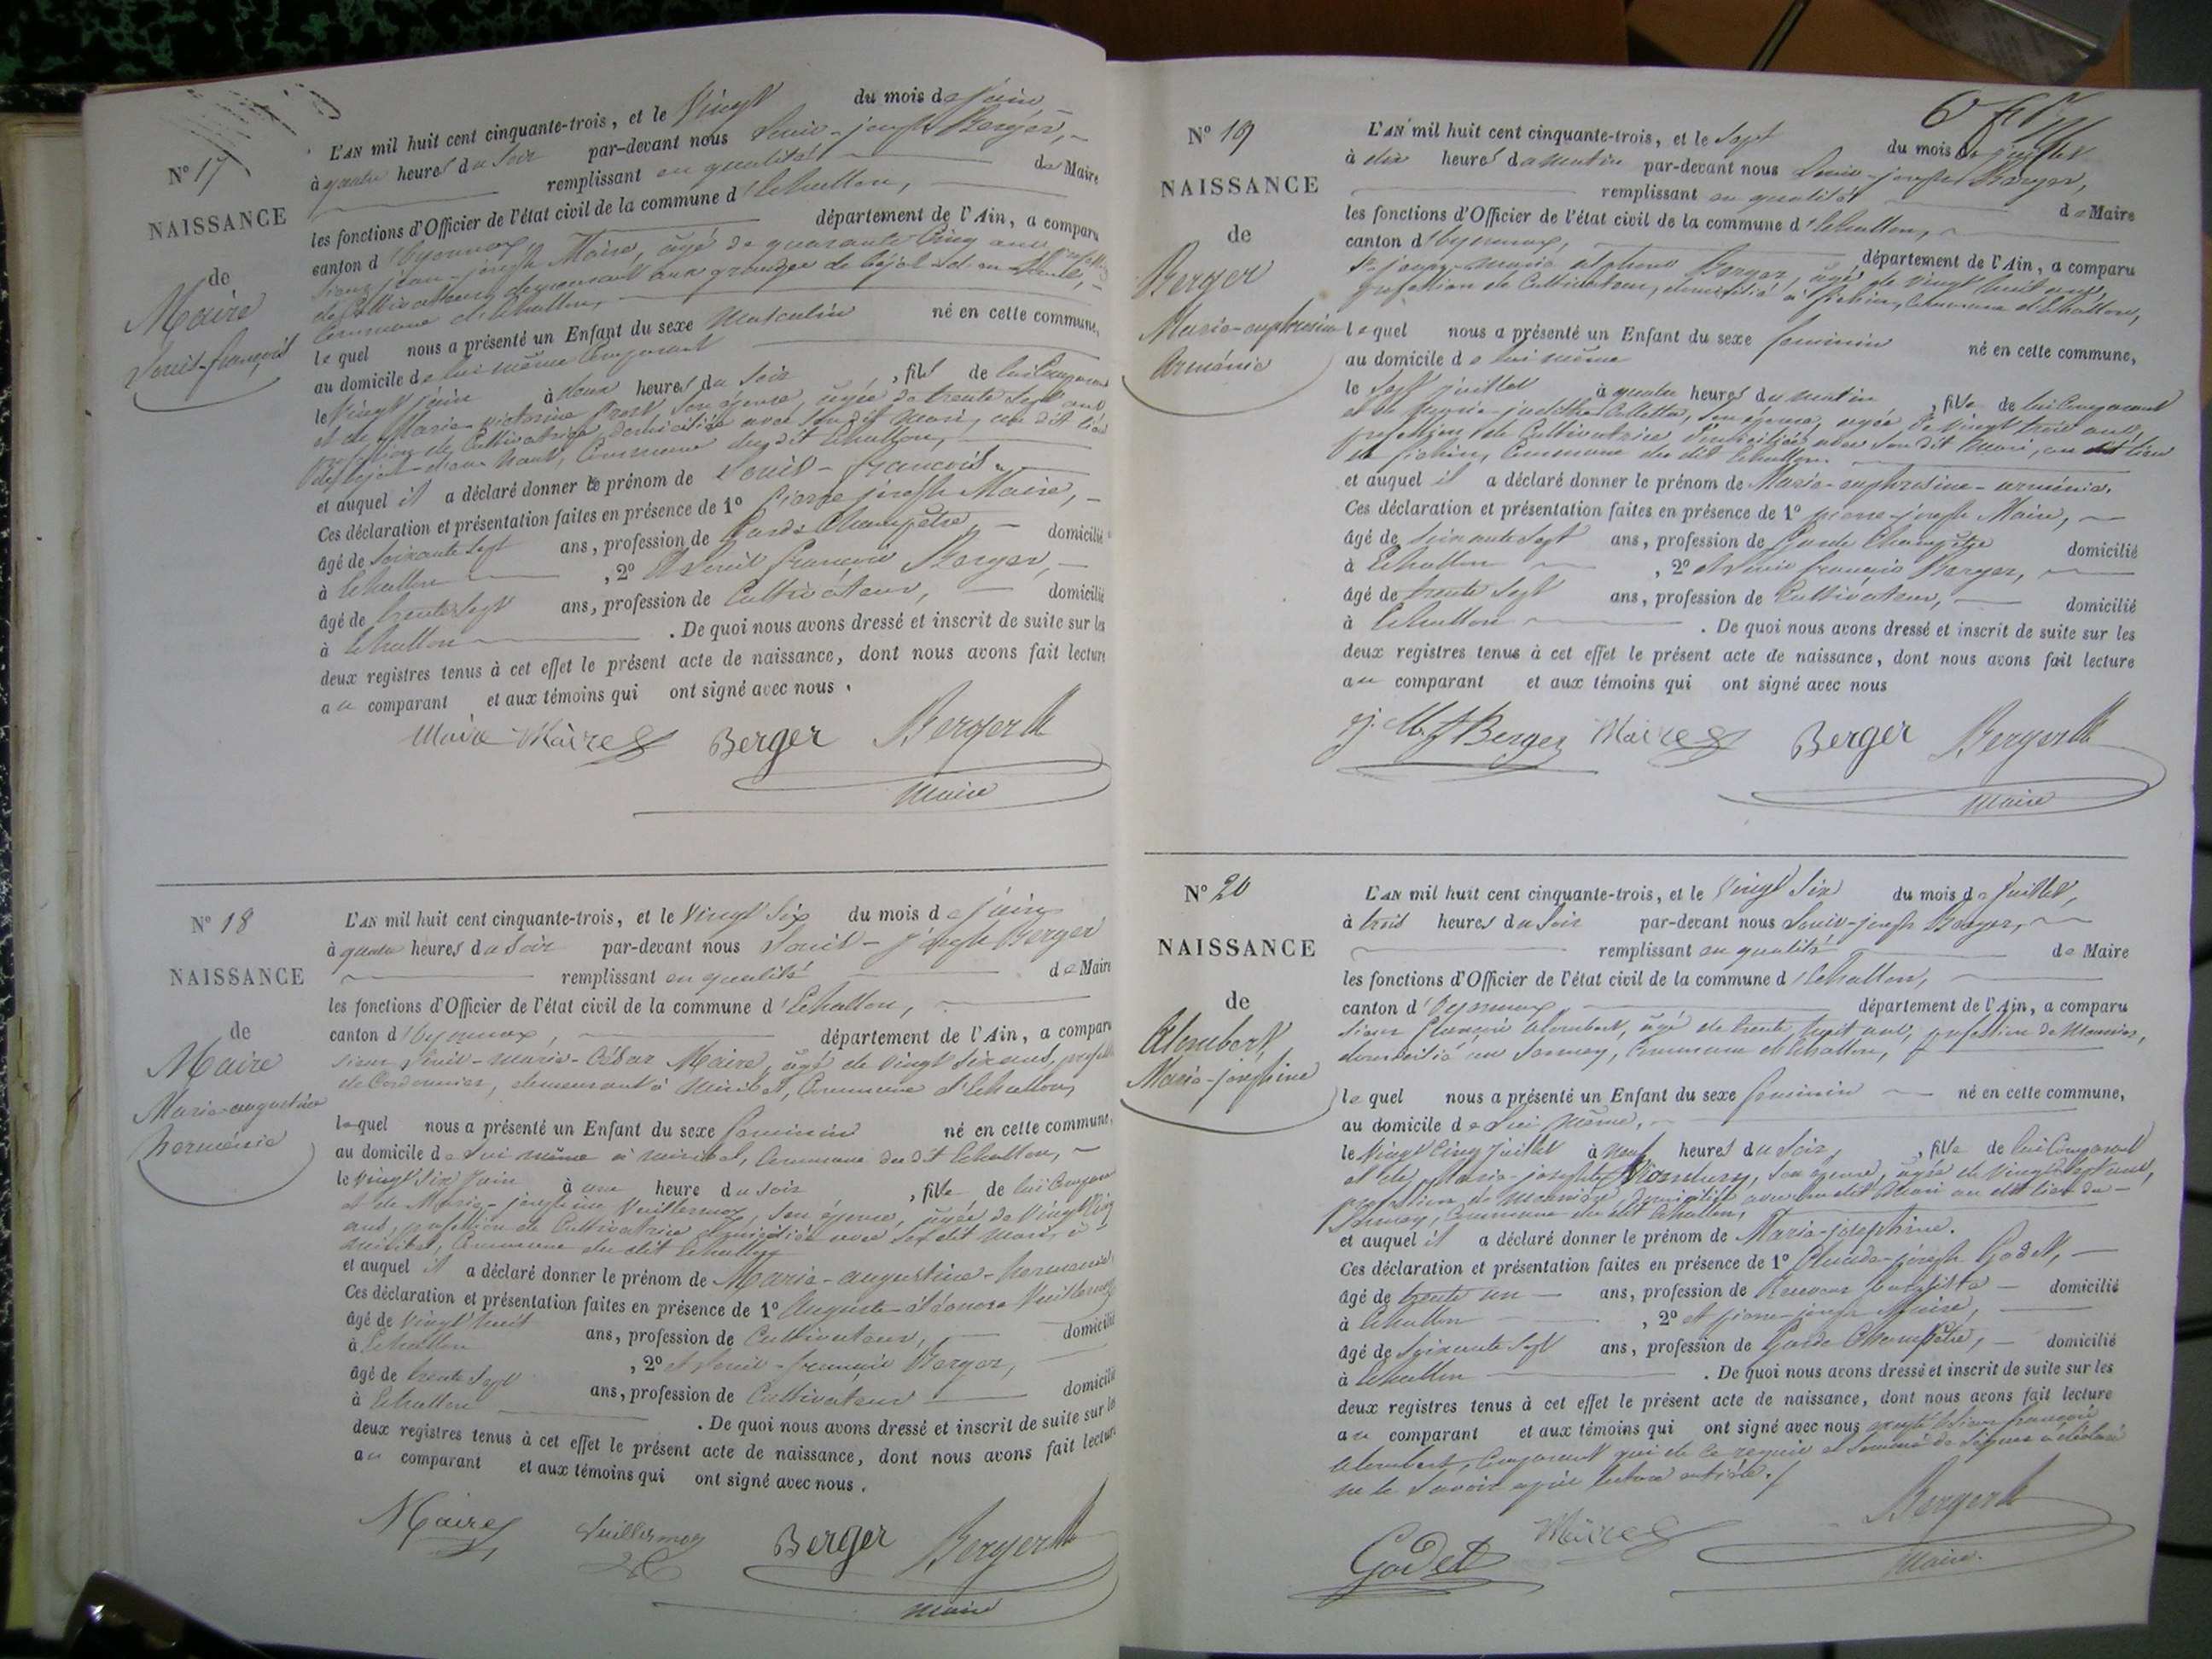 N° 17
NAISSANCE
de
Maire
Louis-françois
L'AN mil huit cent cinquante-trois, et le Vingt du mois de juin
à quatre heures du Soir par-devant nous Louis-joseph Berger,
remplissant en qualité de Maire
les fonctions d'Officier de l'état civil de la commune d'Echallon,
canton d'Oyonnax département de l'Ain, a comparu
Sieur jean-joseph Maire, âgé de quarante Cinq ans
de Cultivateur, demeurant aux granges de
Commune d'Echallon,
lequel nous a présenté un Enfant du sexe Masculin né en cette commune,
au domicile de lui même Comparant
le Vingt juin à deux heures du Soir, fils de lui Comparant
et de Marie victorine Prost, Son épouse, âgée de trente Sept ans
profession de Cultivatrice domiciliée avec Son dit Mari, au dit lieu
Commune du dit Echallon,
et auquel il a déclaré donner le prénom de Louis-françois
Ces déclaration et présentation faites en présence de 1° Pierre joseph Maire,
âgé de Soixante Sept ans, profession de Garde Champêtre, domicilié
à Echallon, 2° et Louis françois Berger,
âgé de trente Sept ans, profession de Cultivateur, domicilié
à Echallon. De quoi nous avons dressé et inscrit de suite sur les
deux registres tenus à cet effet le présent acte de naissance, dont nous avons fait lecture
au comparant et aux témoins qui ont signé avec nous.
Maire Maire Berger Berger
Maire
N° 18
NAISSANCE
de
Maire
Marie-augustine
herménie
L'AN mil huit cent cinquante-trois, et le Vingt Six du mois de juin
à quatre heures du Soir par-devant nous Louis-joseph Berger
remplissant en qualité de Maire
les fonctions d'Officier de l'état civil de la commune d'Echallon,
canton d'Oyonnax, département de l'Ain, a comparu
Sieur Louis-marie-César Maire, âgé de Vingt Six ans,
de Cordonnier, demeurant à Miribel, Commune d'Echallon,
lequel nous a présenté un Enfant du sexe feminin né en cette commune,
au domicile de Lui même à miribel, Commune du dit Echallon,
le Vingt Six Juin à une heure du Soir, fille de lui Comparant
et de Marie-josephine Vuillermoz, Son épouse, âgée de Vingt Cinq
ans, profession de Cultivatrice domiciliée avec Son dit Mari, à
miribel, Commune du dit Echallon
et auquel il a déclaré donner le prénom de Marie-augustine-herménie
Ces déclaration et présentation faites en présence de 1° Auguste Vuillermoz
âgé de Vingt huit ans, profession de Cultivateur, domicilié
à Echallon, 2° et Louis-françois Berger,
âgé de trente Sept ans, profession de Cultivateur domicilié
à Echallon. De quoi nous avons dressé et inscrit de suite sur les
deux registres tenus à cet effet le présent acte de naissance, dont nous avons fait lecture
au comparant et aux témoins qui ont signé avec nous.
Maire Vuillermoz Berger Berger
Maire
N° 19
NAISSANCE
de
Berger
Marie-euphrosine
Arménie
L'AN mil huit cent cinquante-trois, et le Sept du mois de juillet
à dix heures du matin par-devant nous Louis-joseph Berger,
remplissant en qualité de Maire
les fonctions d'Officier de l'état civil de la commune d'Echallon,
canton d'Oyonnax, département de l'Ain, a comparu
Sr. joseph-marie alphonse Berger, âgé de Vingt huit ans,
profession de Cultivateur, domicilié à fichin, Commune d'Echallon,
lequel nous a présenté un Enfant du sexe feminin né en cette commune,
au domicile de lui même
le Sept juillet à quatre heures du matin, fille de lui Comparant
et de Marie-judithe Colletta, Son épouse, âgée de Vingt trois ans,
profession de Cultivatrice, domiciliée avec Son dit Mari, au dit lieu
de fichin, Commune du dit Echallon.
et auquel il a déclaré donner le prénom de Marie-euphrosine-arménie.
Ces déclaration et présentation faites en présence de 1° pierre-joseph Maire,
âgé de Soixante Sept ans, profession de Garde Champêtre domicilié
à Echallon, 2° et Louis françois Berger,
âgé de trente Sept ans, profession de Cultivateur, domicilié
à Echallon. De quoi nous avons dressé et inscrit de suite sur les
deux registres tenus à cet effet le présent acte de naissance, dont nous avons fait lecture
au comparant et aux témoins qui ont signé avec nous
Berger Maire Berger Berger
Maire
N° 20
NAISSANCE
de
Alombert,
Marie-josephine
L'AN mil huit cent cinquante-trois, et le Vingt Six du mois de Juillet,
à trois heures du Soir par-devant nous Louis-joseph Berger,
remplissant en qualité de Maire
les fonctions d'Officier de l'état civil de la commune d'Echallon,
canton d'Oyonnax département de l'Ain, a comparu
Sieur François Alombert, âgé de trente huit ans, profession de Meunier,
domicilié au Commune d'Echallon,
lequel nous a présenté un Enfant du sexe feminin né en cette commune,
au domicile de Lui même,
le Vingt Cinq Juillet à neuf heures du Soir, fille de lui Comparant
et de Marie-josephte Son épouse, âgée de Vingt Sept ans,
profession de Meunière, domiciliée avec Son dit Mari au dit lieu du
Commune du dit Echallon,
et auquel il a déclaré donner le prénom de Marie-josephine.
Ces déclaration et présentation faites en présence de 1° Claude-joseph Godet,
âgé de trente un ans, profession de Receveur buraliste domicilié
à Echallon, 2° et pierre-joseph Maire,
âgé de Soixante Sept ans, profession de Garde Champêtre, domicilié
à Echallon. De quoi nous avons dressé et inscrit de suite sur les
deux registres tenus à cet effet le présent acte de naissance, dont nous avons fait lecture
au comparant et aux témoins qui ont signé avec nous excepté le Sieur françois
Alombert, Comparant qui de ce requis et Sommé de Signer a déclaré
ne le Savoir après lecture entière./
Godet Maire Berger
Maire.